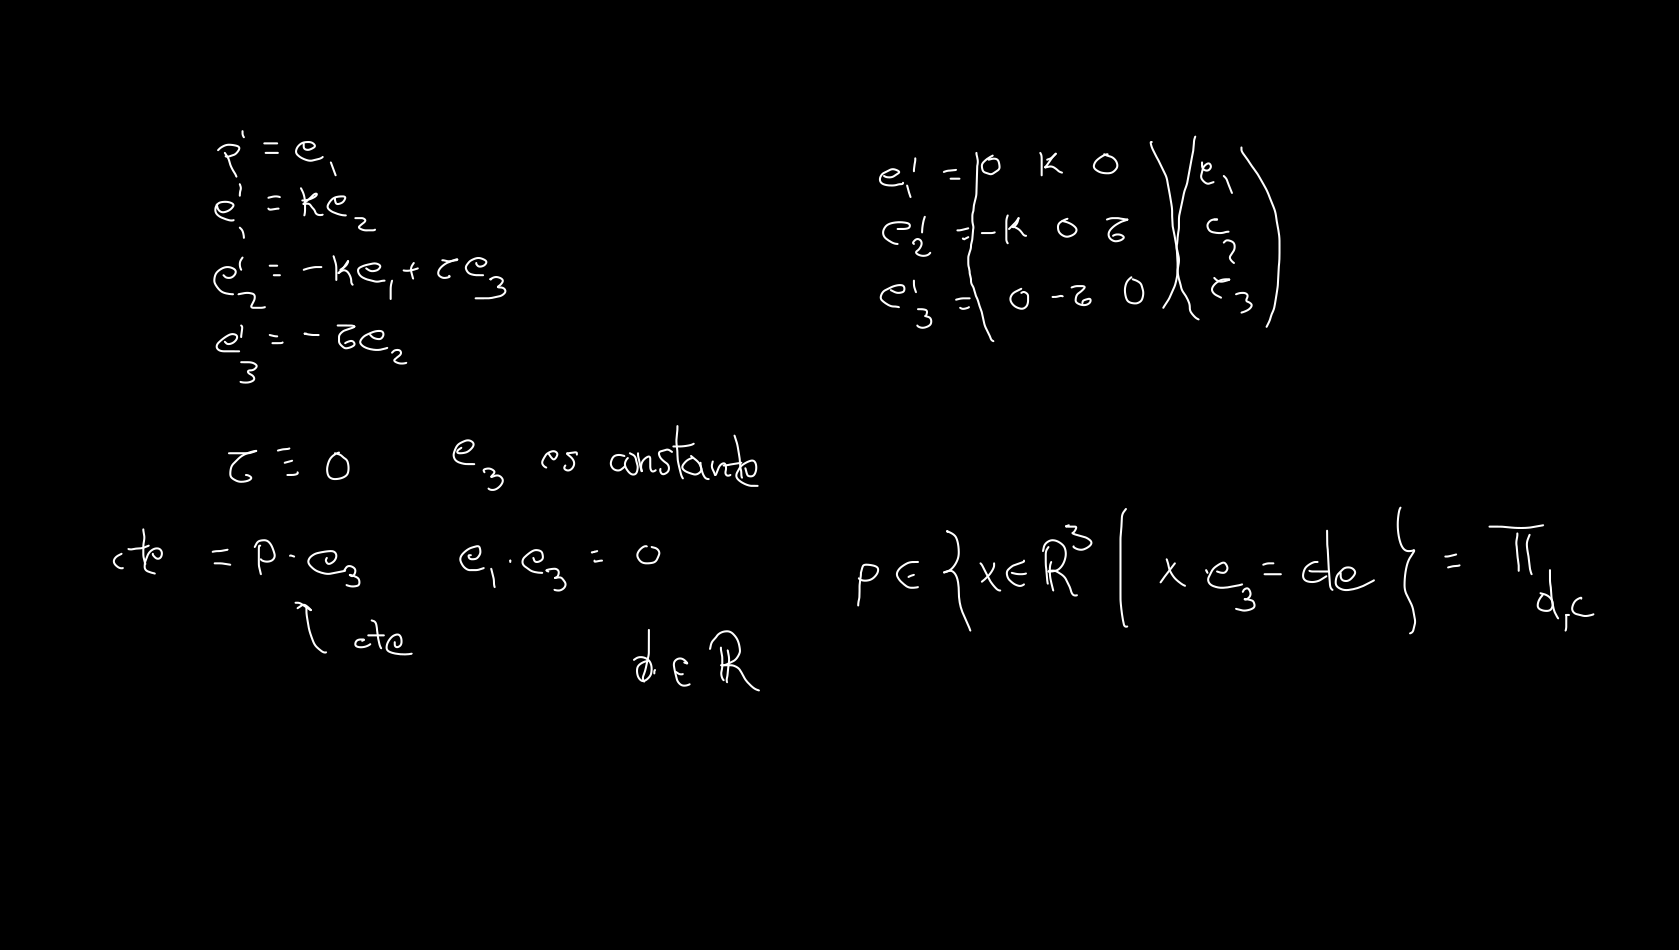 p' = e₁
e₁' = κe₂
e₂' = -κe₁ + τe₃
e₃' = -τe₂
e₁' = ( 0 κ 0 ) ( e₁ )
e₂' = ( -κ 0 τ ) ( e₂ )
e₃' = ( 0 -τ 0 ) ( e₃ )
τ ≡ 0 e₃ es constante
cte = p · e₃ e₁ · e₃ = 0
↑ cte
d ∈ ℝ
p ∈ { x ∈ ℝ³ | x · e₃ = de } = Π d,c